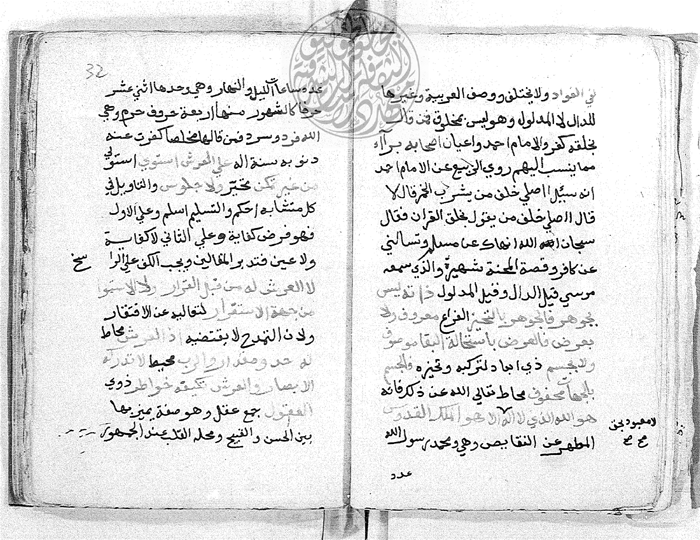 في الفواد ولا يختلف ووصف العربية وغيرها
للدال لا المدلول وهو ليس بمخلوق فمن قال
بخلقه كفر والامام احمد واعيان اصحابه برآء
مما ينسب اليهم روي الربيع عن الامام احمد
انه سيل اصلي خلف من يشرب الخمر قال لا
قال ااصلي خلف من يقول بخلق القران فقال
سبحان الله انهاك عن مسلم وتسالني
عن كافر وقصة المحنة شهيرة والذي سمعه
موسي قيل الدال وقيل المدلول ذاته ليس
بجوهر فالجوهر بالتحيز معروف ولا
بعرض فالعرض باستحالة البقا موصوف
ولا بجسم ذي ابعاد لتركبه وتحيزه فالجسم
بالجهات محفوف محاط تعالي الله عن ذلك فانه
هو الله الذي لا اله الا هو الملك القدوس
المطهر عن النقايص وهي ومحمد رسول الله
لا معبود بحق
صح
عدد
32
عدد ساعات الليل والنهار وهي وحدها اثني عشر
حرفا كالشهور منها اربعة حروف حرم وهي
الله فرد وسرد فمن قالها مخلصا كفرت عنه
ذنوبه سنة اله علي العرش استوي استوي
من غير تمكن تحيز ولا جلوس والتاويل في
كل متشابه احكم والتسليم اسلم وعلي الاول
فهو فرض كفاية وعلي الثاني لا كفاية
ولا عين فتدبر المقالين ويجب الكف
لا العرش له من قبل القرار ولا الاستوا
من جهة الاستقرار لتعاليه عن الافتقار
ولان القدم لا يقتضيه اذ العرش محاط
له حد ومقدار والرب محيط لا تدركه
الابصار والعرش تكيفه خواطر ذوي
العقول جمع عقل وهو صفة يميز بها
بين الحسن والقبيح ومحله القلب عند الجمهور